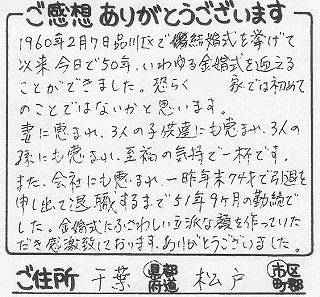 ご感想 ありがとうございます
1960年2月7日品川区で結婚式を挙げて
以来今日で50年、いわゆる金婚式を迎える
ことができました。恐らく 家では初めて
のことではないかと思います。
妻に恵まれ、3人の子供達にも恵まれ、3人の
孫にも恵まれ、至福の気持で一杯です。
また、会社にも恵まれ、一昨年末74才で引退を
申し出て退職するまで51年9ヶ月の勤続で
した。金婚式にふさわしい立派な額を作っていた
だき感激致しております。ありがとうございました。
ご住所 千葉 都道府県 松戸 市区町郡